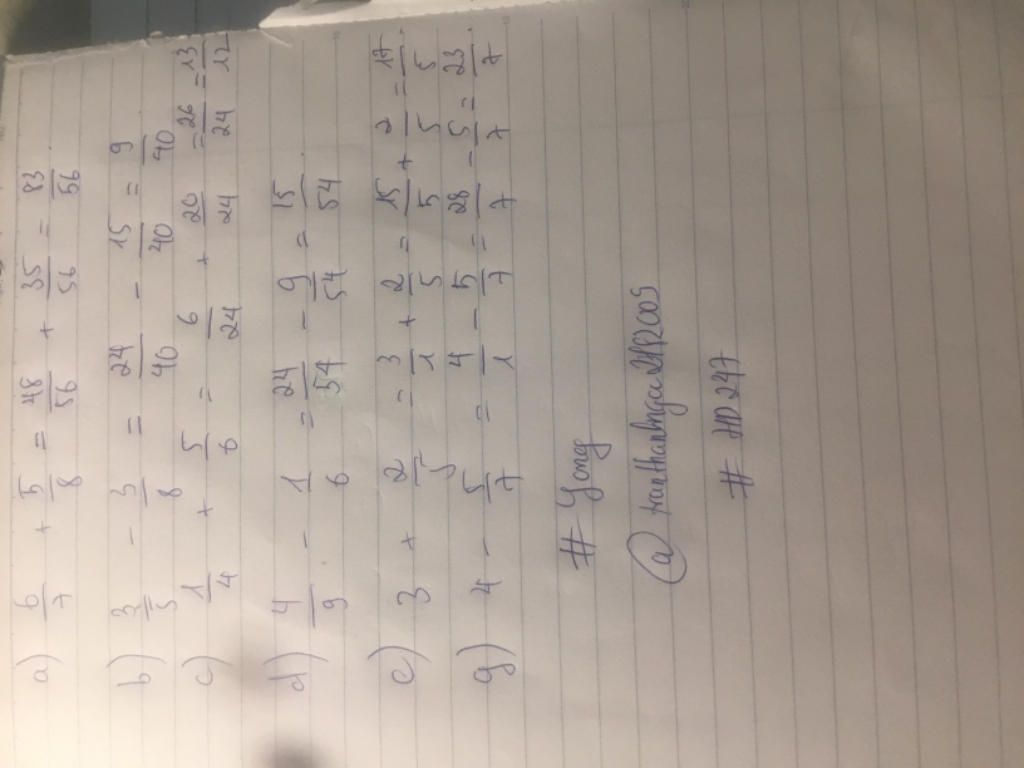 a) 6/7 + 5/8 = 48/56 + 35/56 = 83/56
b) 3/5 - 3/8 = 24/40 - 15/40 = 9/40
c) 1/4 + 5/6 = 6/24 + 20/24 = 26/24 = 13/12
d) 4/9 - 1/6 = 24/54 - 9/54 = 15/54
e) 3 + 2/5 = 3/1 + 2/5 = 15/5 + 2/5 = 17/5
g) 4 - 5/7 = 4/1 - 5/7 = 28/7 - 5/7 = 23/7
# Yong
# HD247